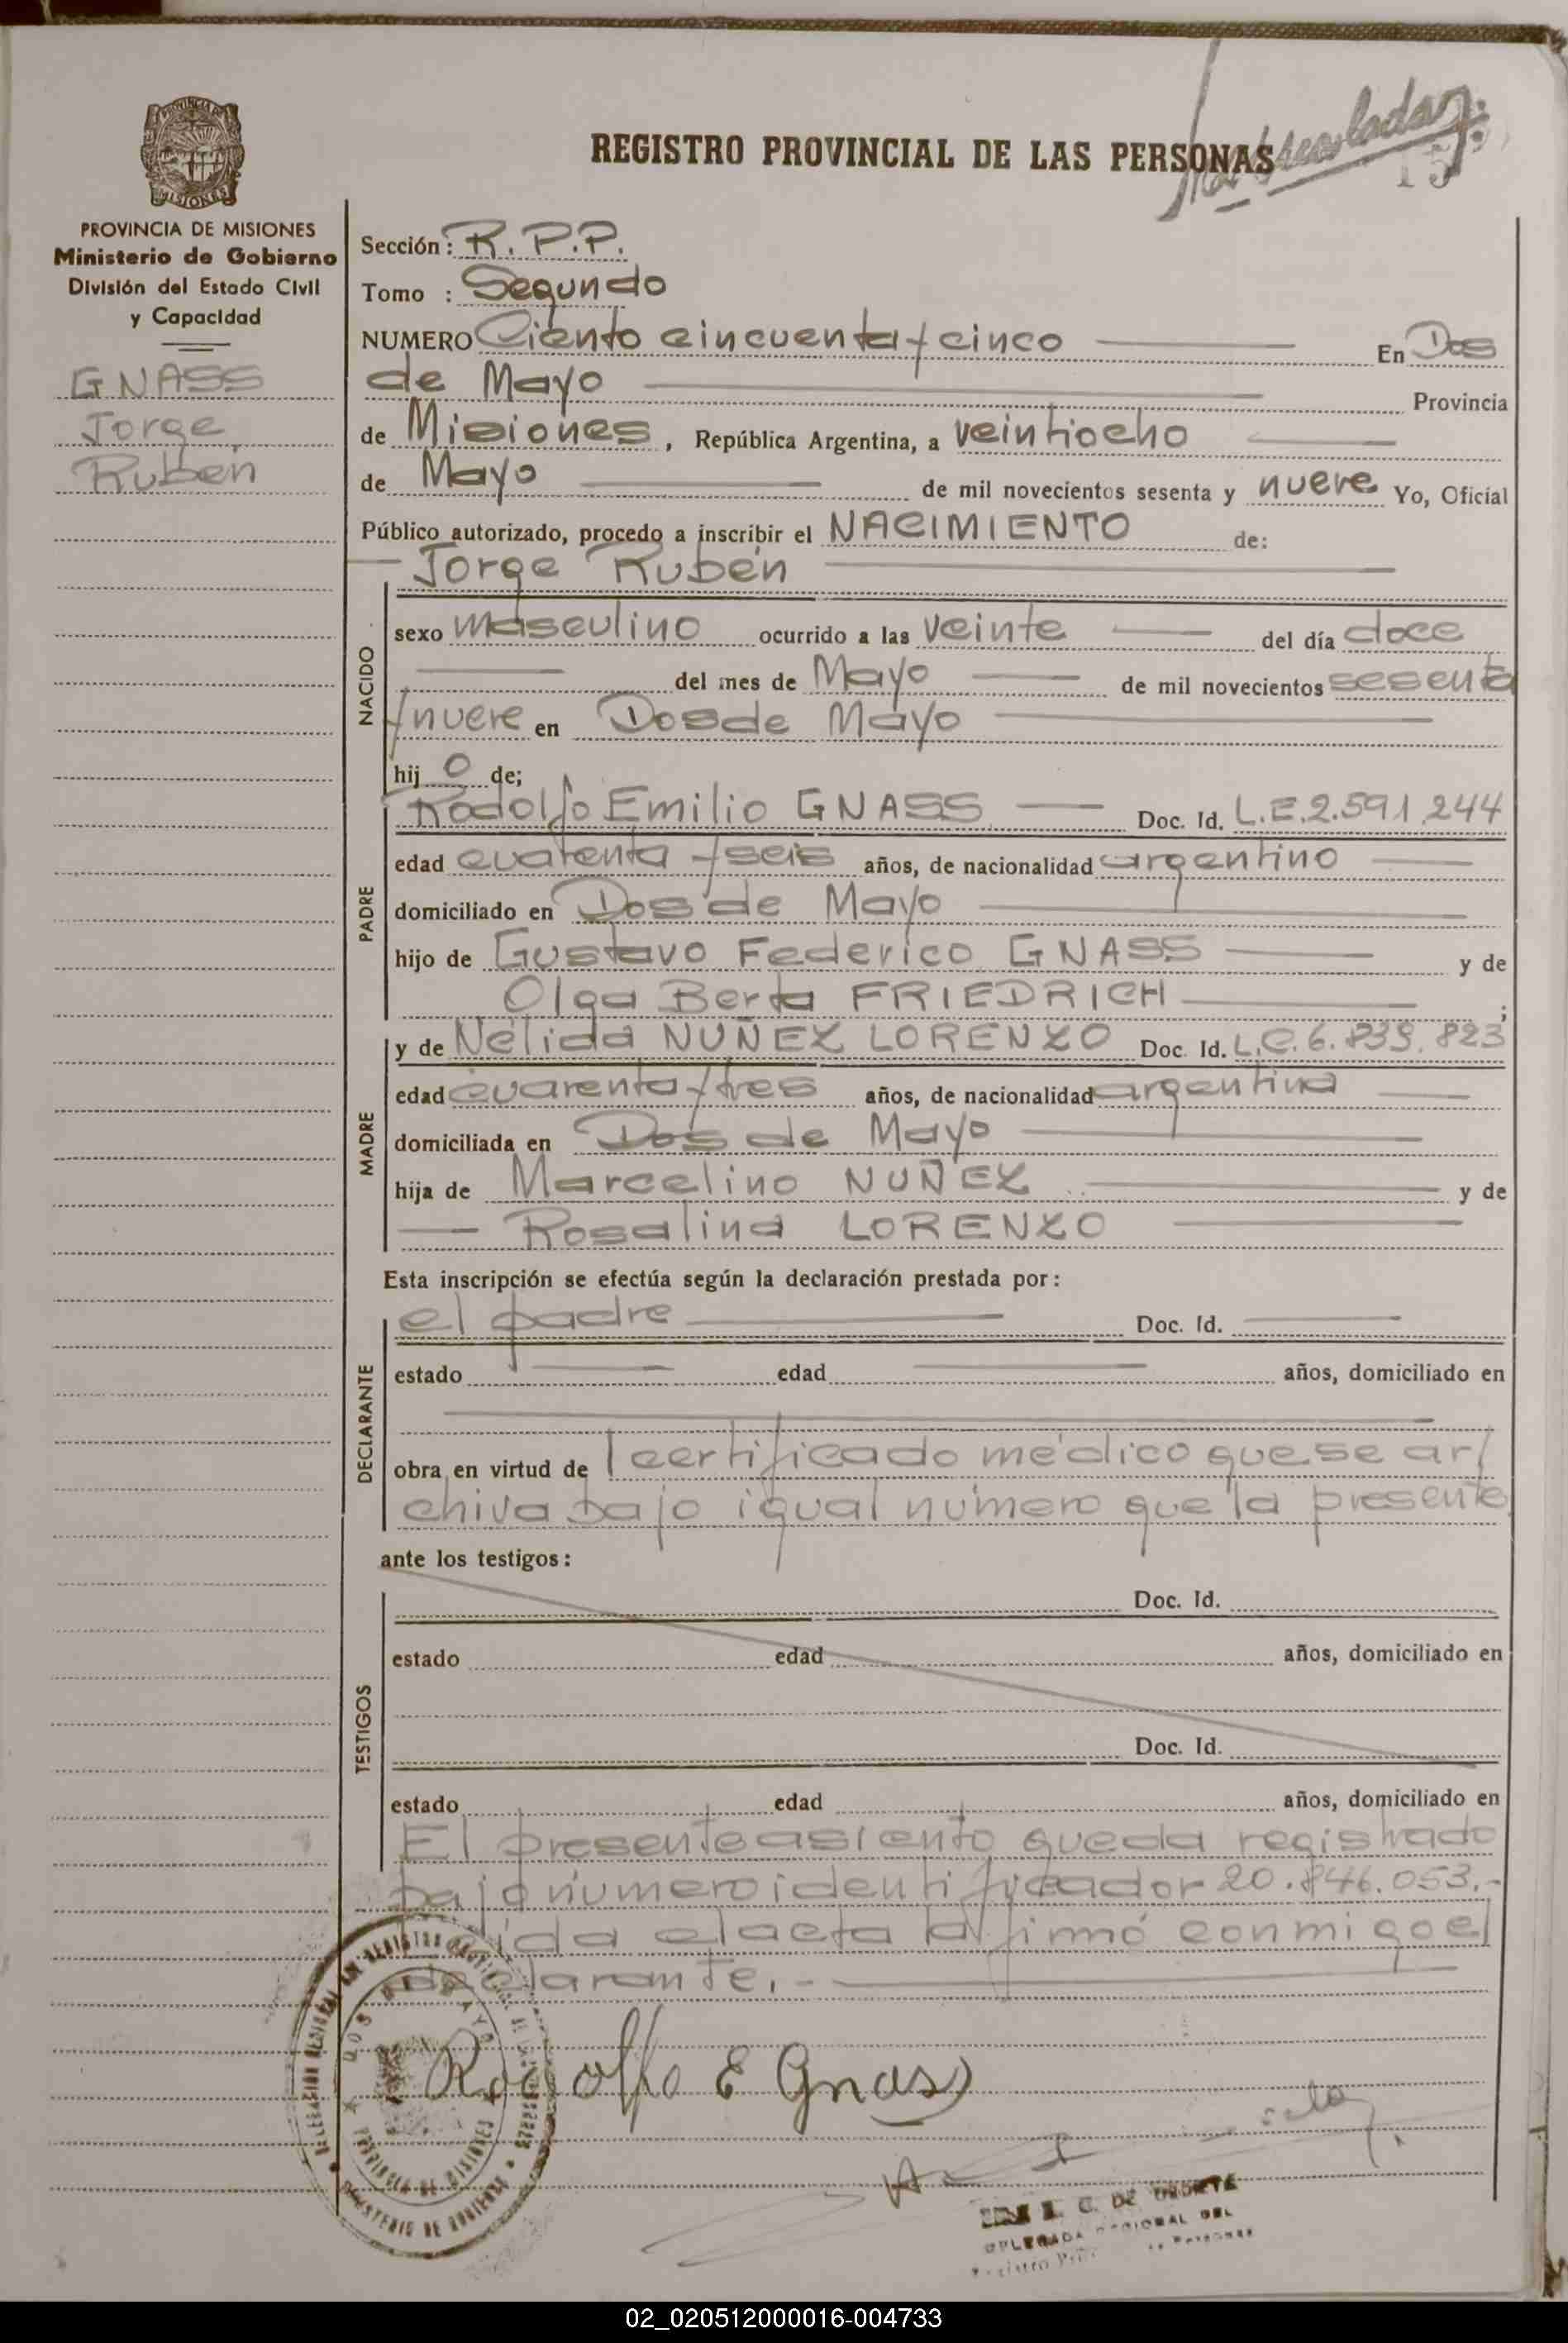 REGISTRO PROVINCIAL DE LAS PERSONAS
155
PROVINCIA DE MISIONES
Ministerio de Gobierno
División del Estado Civil
y Capacidad
GNASS
Jorge
Rubén
Sección: R. P. P.
Tomo : Segundo
NUMERO Ciento cincuenta y cinco En Dos
de Mayo Provincia
de Misiones, República Argentina, a veintiocho
de Mayo de mil novecientos sesenta y nueve Yo, Oficial
Público autorizado, procedo a inscribir el NACIMIENTO de:
Jorge Rubén
NACIDO
sexo masculino ocurrido a las veinte del día doce
del mes de Mayo de mil novecientos sesenta
y nueve en Dos de Mayo
hij o de;
PADRE
Rodolfo Emilio GNASS Doc. Id. L.E. 2.591.244
edad cuarenta y seis años, de nacionalidad argentino
domiciliado en Dos de Mayo
hijo de Gustavo Federico GNASS y de
Olga Berta FRIEDRICH ;
MADRE
y de Nélida NUÑEZ LORENZO Doc. Id. L.C. 6.839.823
edad cuarenta y tres años, de nacionalidad argentina
domiciliada en Dos de Mayo
hija de Marcelino NUÑEZ y de
Rosalina LORENZO
Esta inscripción se efectúa según la declaración prestada por:
DECLARANTE
el padre Doc. Id.
estado edad años, domiciliado en
obra en virtud de l certificado médico que se ar/
chiva bajo igual número que la presente
ante los testigos:
TESTIGOS
Doc. Id.
estado edad años, domiciliado en
Doc. Id.
estado edad años, domiciliado en
El presente asiento queda registrado
bajo número identificador 20.846.053.-
Leída el acta la firmó conmigo el
declarante.-
Rodolfo E Gnass
DOS DE MAYO
PROVINCIA DE MISIONES
MINISTERIO DE GOBIERNO
DELEGADA REGIONAL DEL
02_020512000016-004733